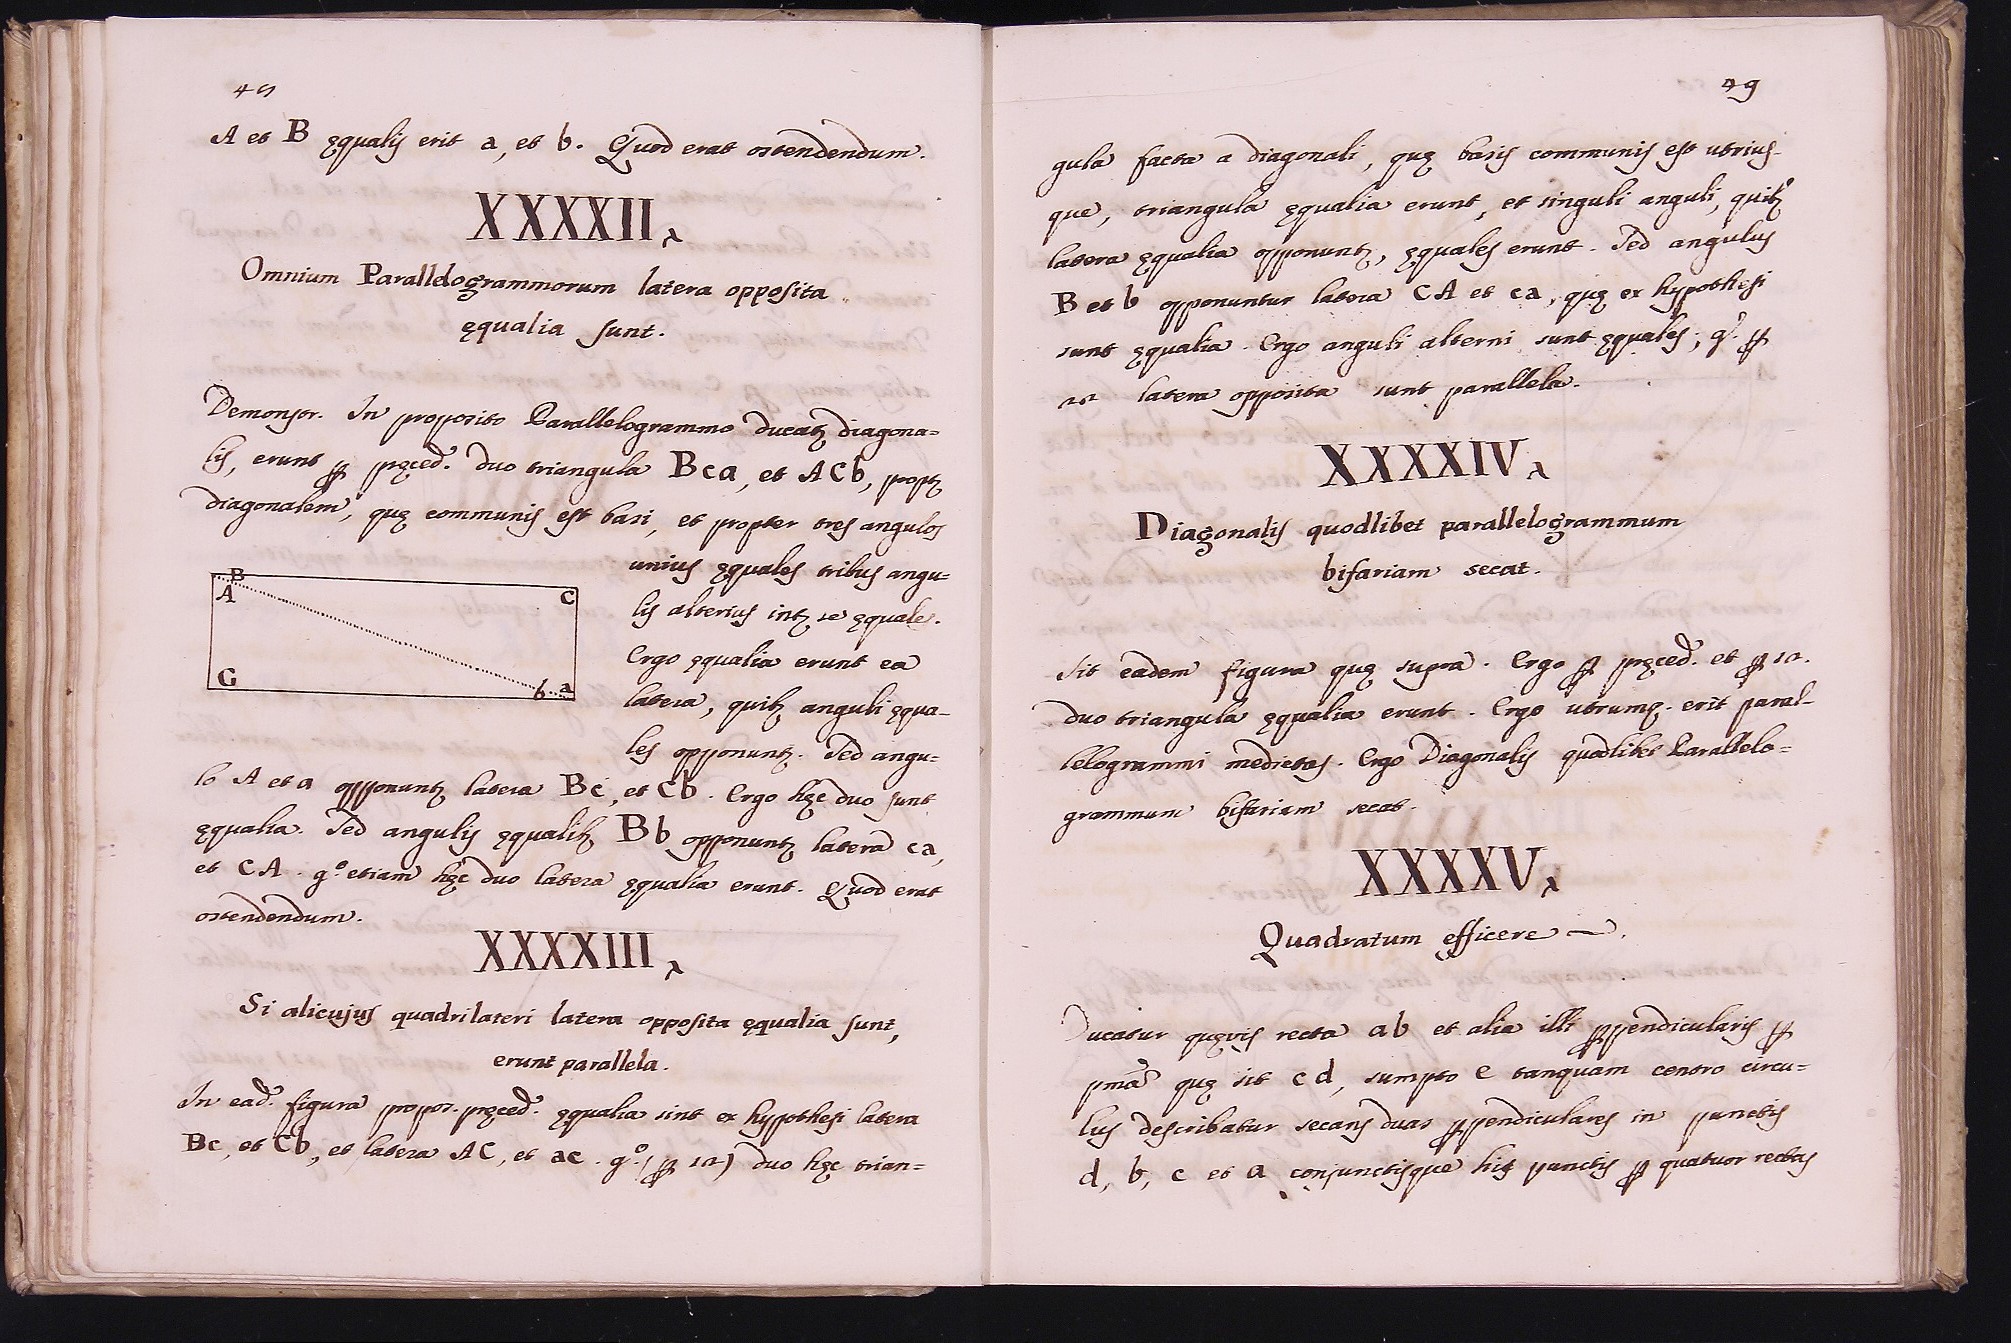 48
A et B ęqualis erit a, et b. Quod erat ostendendum.
XXXXII
Omnium Parallelogrammorum latera opposita
ęqualia sunt.
Demonstr. In proposito Parallelogrammo ducatʒ diagona=
lis, erunt ꝑ pręced. duo triangula Bca, et ACb, proptʒ
diagonalem, quę communis est basi, et propter tres angulos
unius ęquales tribus angu=
lis alterius intʒ se ęquale.
Ergo ęqualia erunt ea
latera, quibʒ anguli ęqua-
les opponuntʒ. Sed angu=
lo A et a opponuntʒ latera Bc, et Cb. Ergo hęc duo sunt
ęqualia. Sed angulis ęqualibʒ Bb opponuntʒ latera ca,
et CA. g.º etiam hęc duo latera ęqualia erunt. Quod erat
ostendendum.
B
A
C
G
b a
XXXXIII
Si alicujus quadrilateri latera opposita ęqualia sunt,
erunt parallela.
In ead. figura propos. pręced. ęqualia sint ex hypothesi latera
Bc, et Cb, et latera AC, et ac. g.º (ꝑ 18) duo hęc trian=
49
gula facta a diagonali, quę basis communis est utrius-
que, triangula ęqualia erunt, et singuli anguli, quibʒ
latera ęqualia opponuntʒ, ęquales erunt. Sed angulus
B et b opponuntur latera CA et ca, quę ex hypothesi
sunt ęqualia. Ergo anguli alterni sunt ęquales; g.º ꝑ
latera opposita sunt parallela.
XXXXIV
Diagonalis quodlibet parallelogrammum
bifariam secat.
Sit eadem figura quę supra. Ergo ꝑ pręced. et ꝑ 18.
duo triangula ęqualia erunt. Ergo utrumq. erit paral-
lelogrammi medietas. Ergo Diagonalis quodlibet Parallelo=
grammum bifariam secat.
XXXXV
Quadratum efficere
Ducatur quęvis recta ab et alia illi ꝑpendicularis ꝑ
pmã quę sit cd, sumpto e tanquam centro circu=
lus describatur secans duas ꝑpendiculares in punctis
d, b, c et a conjunctisque his punctis ꝑ quatuor rectas